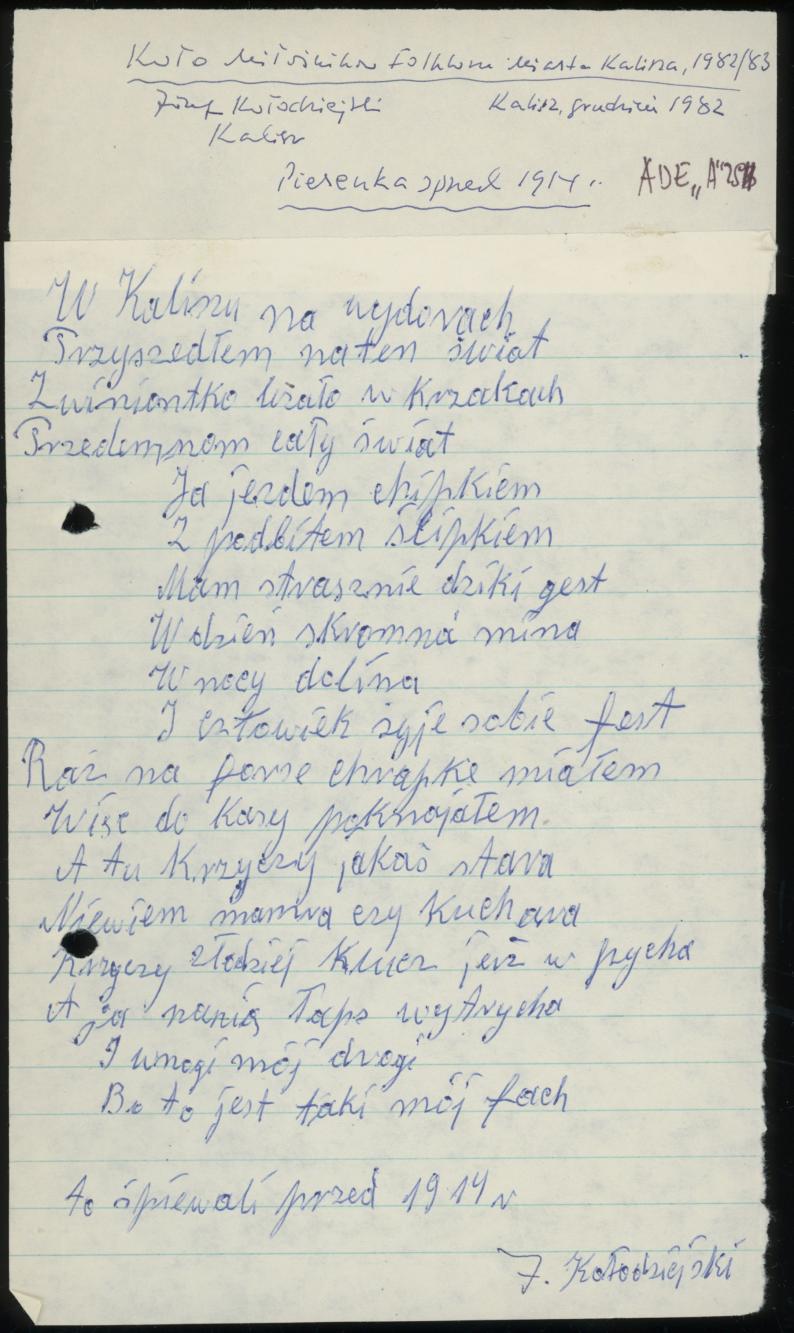 Koło Miłośników Folkloru Miasta Kalisza, 1982/83
Józef Kołodziejski Kalisz, grudzień 1982
Kalisz
Piosenka sprzed 1914 r. ADE „A" 25
W Kaliszu na wydorach
Przyszedłem naten świat
Zwiniontko leżało w krzakach
Przedemnom cały świat
Ja jezdem chipkiem
Z podbitem ślipkiem
Mam strasznie dziki gest
W dzień skromna mina
W nocy dolina
I człowiek żyje sobie fest
Raz na forse chrapke miałem
Więc do kasy
A tu krzyczy jakaś stara
Niewiem mamra czy kuchara
Krzyczy złodziej klucz jerz w pycha
A ja nanią łaps wytrycha
I wnogi mój drogi
Bo to jest taki mój fach
to śpiewali przed 1914 r
J. Kołodziejski